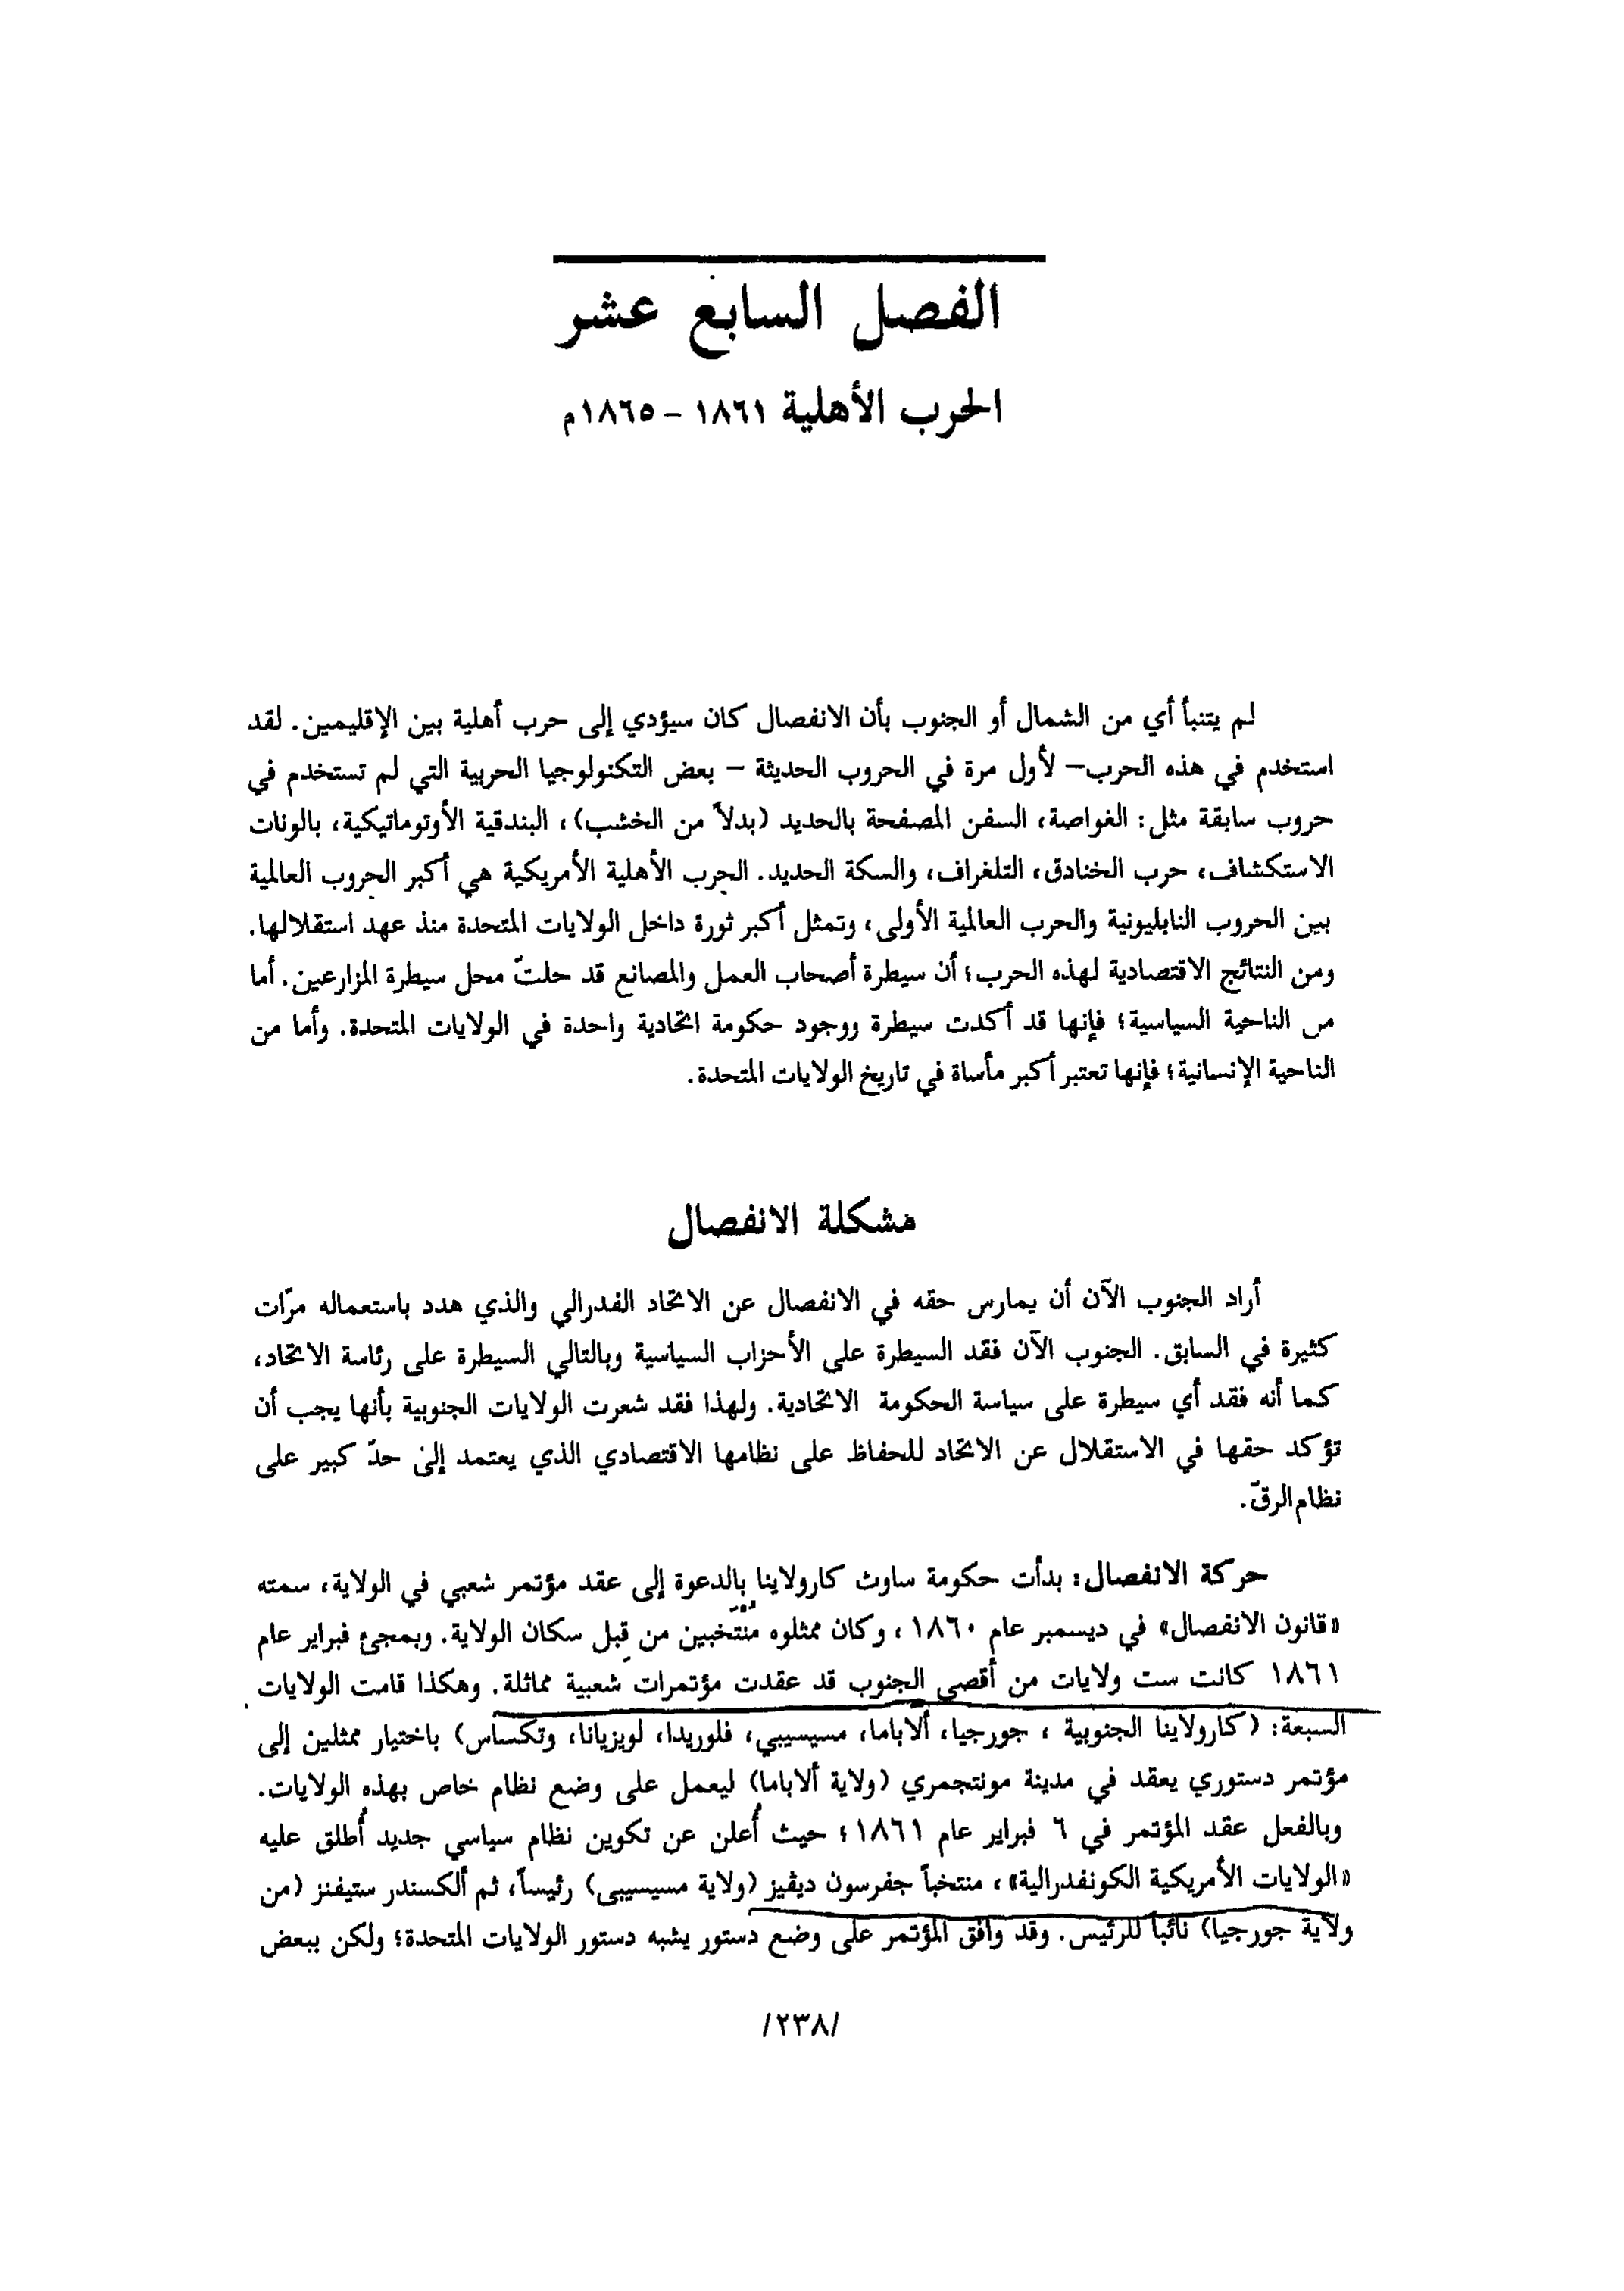 الفصل السابع عشر
الحرب الأهلية ١٨٦١ - ١٨٦٥م
لم يتنبأ أي من الشمال أو الجنوب بأن الانفصال كان سيؤدي إلى حرب أهلية بين الإقليمين. لقد
استخدم في هذه الحرب– لأول مرة في الحروب الحديثة – بعض التكنولوجيا الحربية التي لم تستخدم في
حروب سابقة مثل: الغواصة، السفن المصفحة بالحديد (بدلاً من الخشب)، البندقية الأوتوماتيكية، بالونات
الاستكشاف، حرب الخنادق، التلغراف، والسكة الحديد. الحرب الأهلية الأمريكية هي أكبر الحروب العالمية
بين الحروب النابليونية والحرب العالمية الأولى، وتمثل أكبر ثورة داخل الولايات المتحدة منذ عهد استقلالها.
ومن النتائج الاقتصادية لهذه الحرب؛ أن سيطرة أصحاب العمل والمصانع قد حلتّ محل سيطرة المزارعين. أما
من الناحية السياسية؛ فإنها قد أكدت سيطرة ووجود حكومة اتحادية واحدة في الولايات المتحدة. وأما من
الناحية الإنسانية؛ فإنها تعتبر أكبر مأساة في تاريخ الولايات المتحدة.
مشكلة الانفصال
أراد الجنوب الآن أن يمارس حقه في الانفصال عن الاتحاد الفدرالي والذي هدد باستعماله مرّات
كثيرة في السابق. الجنوب الآن فقد السيطرة على الأحزاب السياسية وبالتالي السيطرة على رئاسة الاتحاد،
كما أنه فقد أي سيطرة على سياسة الحكومة الاتحادية. ولهذا فقد شعرت الولايات الجنوبية بأنها يجب أن
تؤكد حقها في الاستقلال عن الاتحاد للحفاظ على نظامها الاقتصادي الذي يعتمد إلىٰ حدّ كبير على
نظام الرقّ.
حركة الانفصال: بدأت حكومة ساوث كارولاينا بالدعوة إلى عقد مؤتمر شعبي في الولاية، سمته
«قانون الانفصال» في ديسمبر عام ١٨٦٠، وكان ممثلوه مُنْتَخبين من قِبل سكان الولاية. وبمجئ فبراير عام
١٨٦١ كانت ست ولايات من أقصى الجنوب قد عقدت مؤتمرات شعبية مماثلة. وهكذا قامت الولايات
السبعة: (كارولاينا الجنوبية ، جورجيا، ألاباما، مسيسيبي، فلوريدا، لويزيانا، وتكساس) باختيار ممثلين إلى
مؤتمر دستوري يعقد في مدينة مونتجمري (ولاية ألاباما) ليعمل على وضع نظام خاص بهذه الولايات.
وبالفعل عقد المؤتمر في ٦ فبراير عام ١٨٦١؛ حيث أُعلن عن تكوين نظام سياسي جديد أُطلق عليه
«الولايات الأمريكية الكونفدرالية»، منتخباً جفرسون ديڤيز (ولاية مسيسيبي) رئيساً، ثم ألكسندر ستيفنز (من
ولاية جورجيا) نائباً للرئيس. وقد وافق المؤتمر على وضع دستور يشبه دستور الولايات المتحدة؛ ولكن ببعض
/٢٣٨/